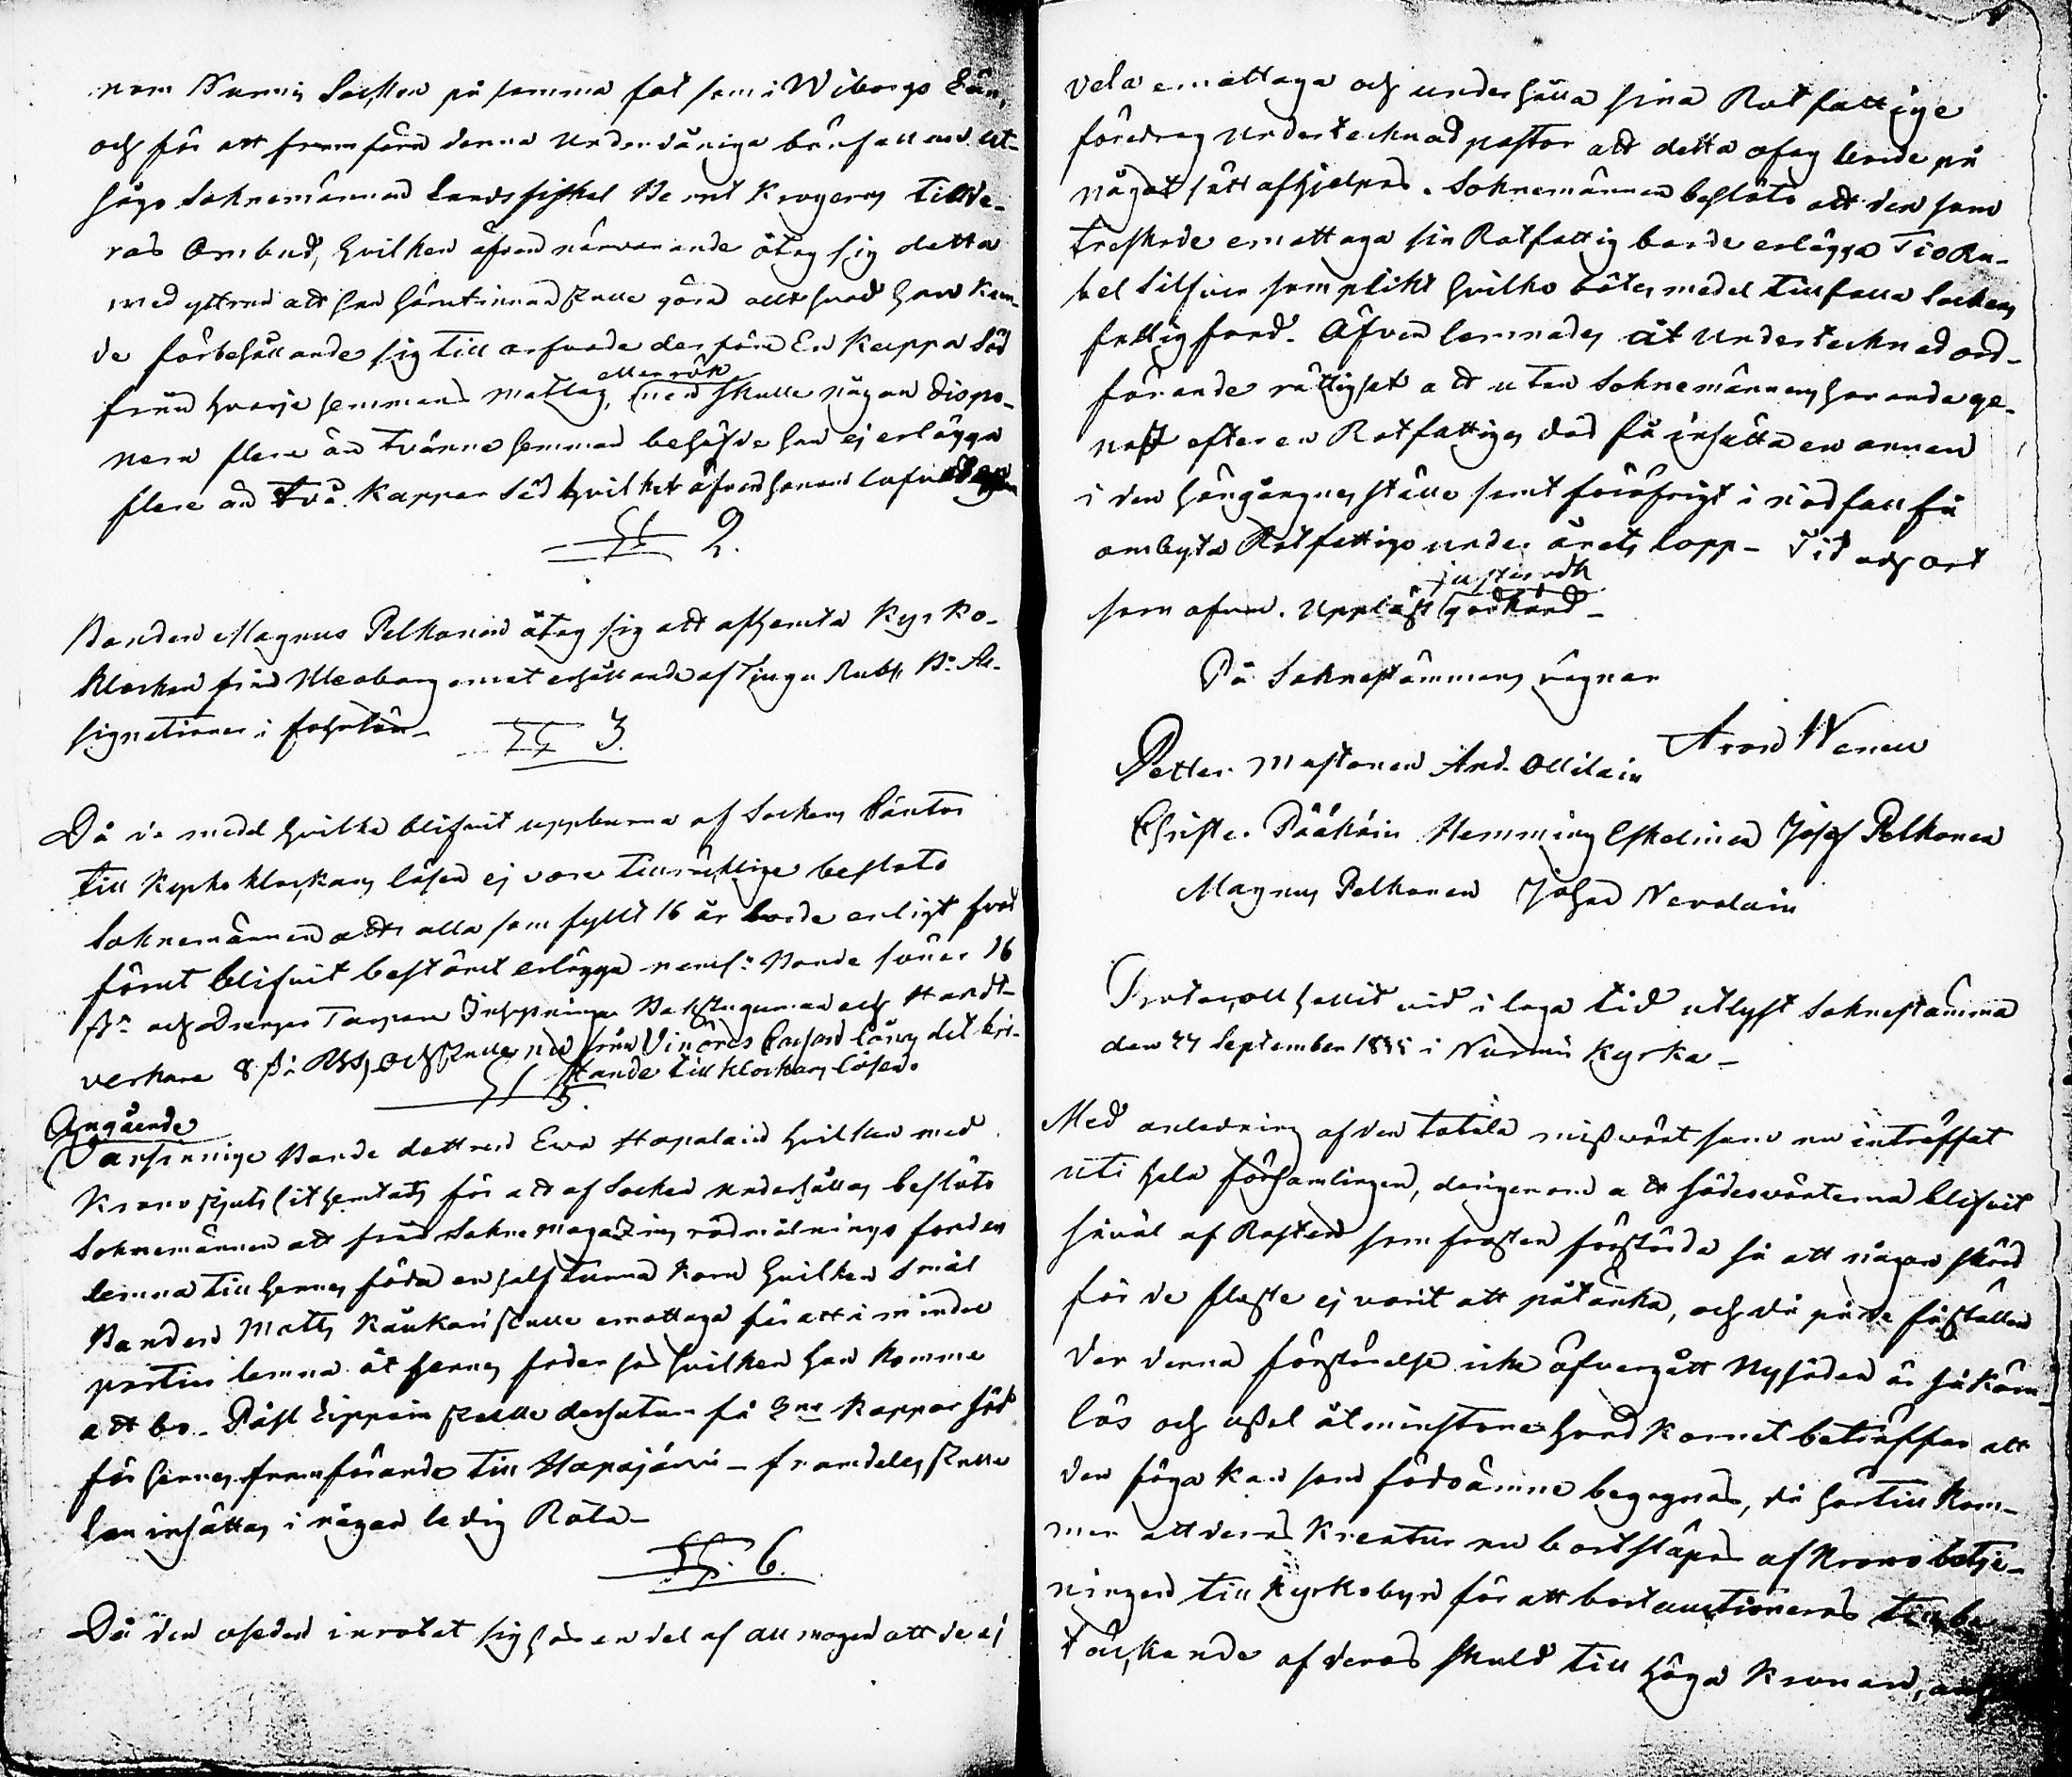 nom Nurmis Socken på samma sat som i Wiborgs Län,
och för att framföra denna underdåniga bönfallan ut-
sågo Soknemännen Landsfiskal Bernt Krogerus till de-
ras Ombud, hvilken äfven närvarande åtog sig detta
med yttrand att han härutinnan skulle göra allt hvad han kun-
de förbehållande sig till arfvode derföre En Kappa Säd
eller rök
från hvarje hemmans matlag, men skulle någon dispo-
nera flere än tvänne hemman behöfde han ej erlägga
flere än två Kappar Säd hvilket äfven honom lofvades
§ 2.
Bonden Magnus Pelkonen åtog sig att afhemta Kyrko-
klockan från Uleåborg emot erhållande af Tjugu Rubl. B:o As-
signationer i forlön
§ 3.
Då de medel hvilka blifvit uppburna af Sockens Söner
till Kyrko klockans lösen ej voro tillräcklige beslöto
Soknemännen att alla som fyllt 16 år borde enligt hvad
förut blifvit bestämt erlägga neml: Bonde söner 16
st: och Drenger Torpare Inhysningar Backstugumän och Handt-
verkare 8 st: Rbs, och skulle nu från Vinörs Cassan lånas det bri-
stande till klockans lösen.
§ 5.
Angående
Vansinnige Bonde dottren Ewa Hapalain hvilken med
Krono skjuts hit hemtats för att af Socken underhållas beslöts
Soknemännen att från Sokne Magazins rödmålnings fonden
lemna till hennes föda en half Tunna Korn hvilken Små
Bonden Matts Käukäri skulle emottaga för att i mindre
portier lemna åt hennes foder hos hvilken hon komme
att bo. Påhl Lippoin skulle dessutom få 3ne Kappar Säd
för hennes framförande till Hapajärvi – framdeles skulle
hon insättas i någon ledig Rota –
§. 6.
Då den oseden inrotat sig hos en del af allmogen att de ej
vela emottaga och underhålla sina Rotfattige
föredrog undertecknad pastor att detta ofog borde på
något sätt afhjelpas. Soknemännen beslöto att den som
treskode emottaga sin Rotfattig borde erlägga Tio Ru-
bel Silfver som plikt hvilka bötes medel tillfalla Sockens
fattigfond. Äfven lemnades åt undertecknad ord-
förande rättighet att utan Sokne männens hörande ge-
nast efter en Rotfattiges död få insätta en annan
i den hängångnes ställe samt föröfrigt i nödfall få
ombyta Rotfattige under årets lopp – Tid och ort
justeradt
som ofvan. Uppläst godkänd –
På Soknestämmans vägnar
Aron Nenen
Petter Mustonen And. Ollilain
Christer Pääkköin Hemming Eskelinen Josef Pelkonen
Magnus Pelkonen Johan Nevalain
Protocoll hållit vid i laga tid utlyst Soknestämma
den 27 September 1835 i Nurmis Kyrka –
Med anledning af den totala missvext som nu inträffat
uti hela församlingen, derigenom att sädesvexterna blifvit
såväl af Rosten som frosten förstörda så att någon skörd
för de flesta ej varit att påtänka, och då på de få ställen
der denna förstörelse icke öfvergått Nysäden är så kärn-
lös och usel åtminstone hvad kornet beträffar att
den föga kan som födoämne begagnas, då härtill kom-
mer att deras Kreatur nu bortsläpas af Krono betje-
ningen till Kyrkobyn för att bortauctioneras till be-
täckande af deras skuld till höga Kronan, och